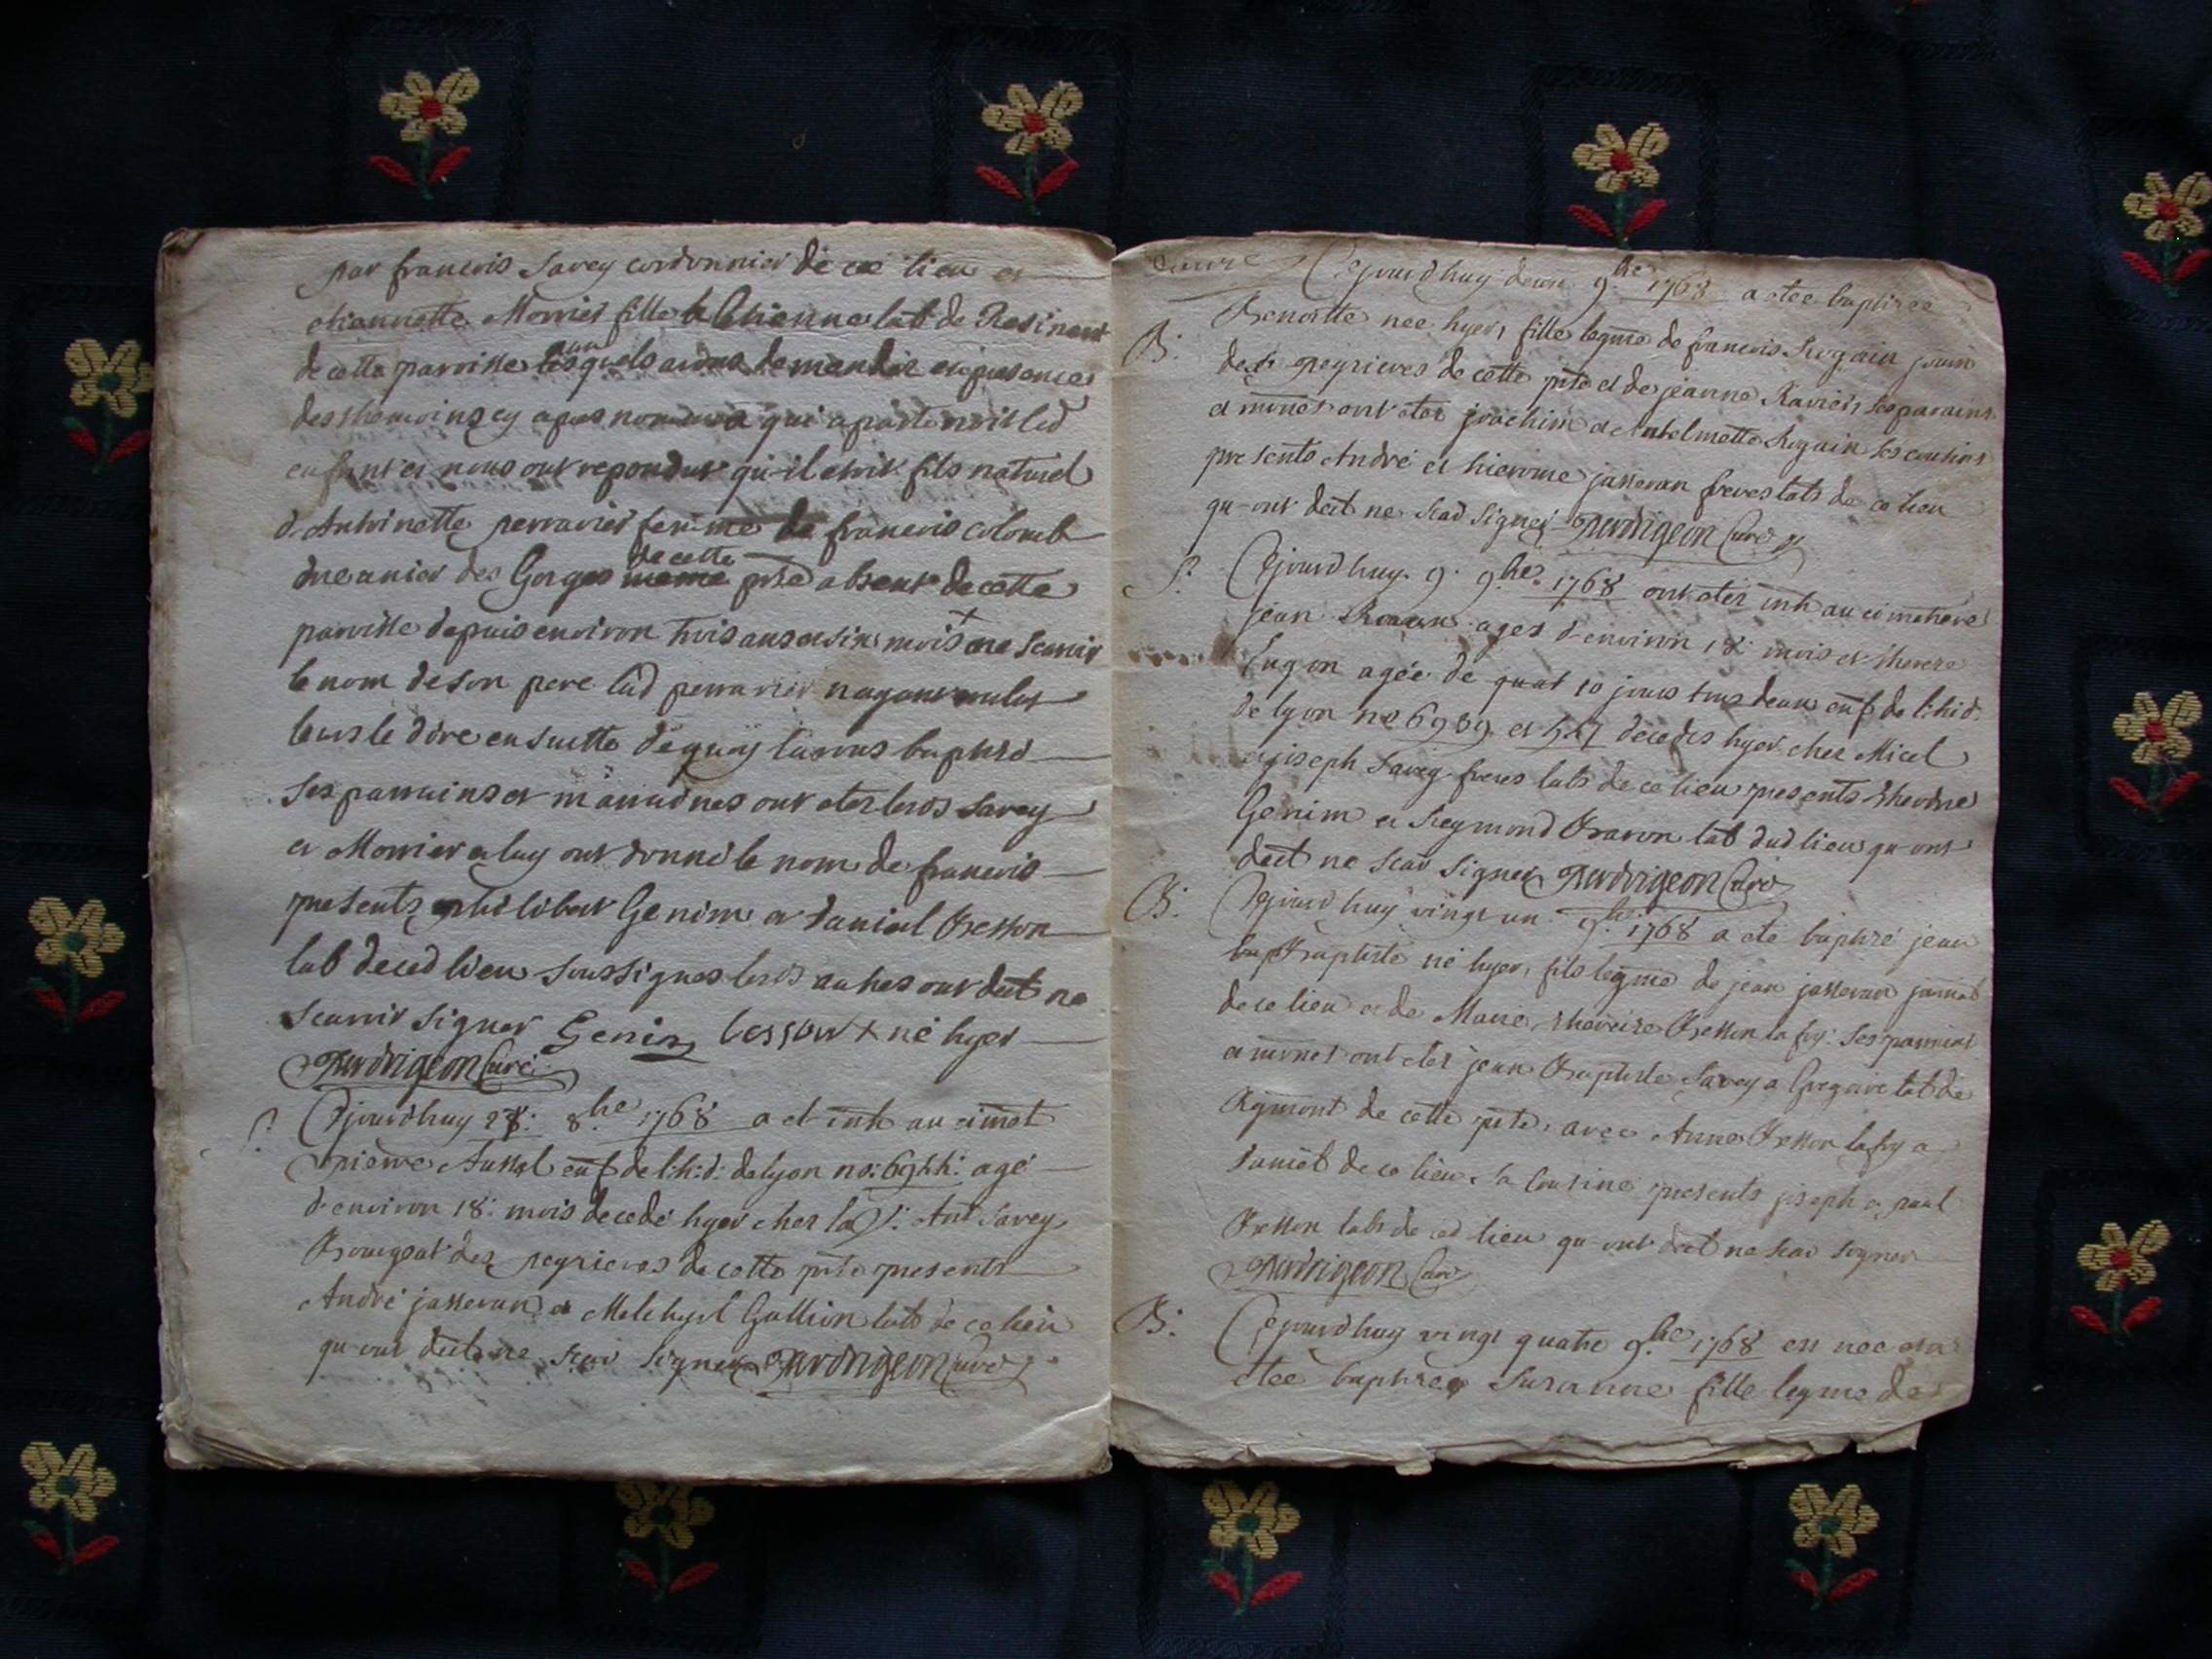 par francois Savey cordonnier de ce lieu et
etiennette Morrier fille a Ethienne lab de Rosinant
de cette paroisse lesquels avons demandés en presence
des themoins cy apres nommés a qui apartenoit led
enfant et nous ont repondut qu-il etoit fils naturel
d-Antoinette perravier femme de francois colomb
des Gorges de cette
prse absent de cette
paroisse depuis environ trois ans et six mois ne scavoir
le nom de son pere lad perravier n'ayant voulut
leurs le dire en suitte de quoy l'avons baptisé
Ses parrains et marraines ont etes lesds Savey
et Morrier et luy ont donné le nom de francois
presents philibert Genin et daniel Besson
lab decedlieu soussignes lesds autres ont deit ne
scavoir signer Genin besson + né hyer
Perdrigeon Curé
S. Cejourdhuy 28: 8.bre 1768 a et inh au cimet
pierre enf de l.h.d: de lyon no: agé
d-environ 18: mois decedé hyer chez la Savey
Bougeat des peyrieres de cette prse presents
André jasseran et Melchyel Gallion labs de ce lieu
qu-ont deit ne scav signer Perdrigeon Curé
Cejourdhuy deux 9.bre 1768 a etee baptisee
B. Benoitte nee hyer, fille legme de francois Rogain
des peyrieres de cette prse et de jeanne Ravier, ses parains
et mrnes ont etes joachim et Antelmette Rogain ses cousins
presents André et hierome jasseran freres labs de ce lieu
qu-ont deit ne scav signer Perdrigeon Curé
S. Cejourdhuy 9. 9.bre 1768 ont etes inh au cimetiere
jean ages d-environ 18 mois et therese
agée de 10 jours tous deux enf de l.h.d.
de lyon no 6939 et decedes hyer chez Micel
et joseph Savey freres labs de ce lieu presents
Genin et Reymond Baron lab dud lieu qu-ont
deit ne scav signer Perdrigeon Curé
B. Cejourdhuy vingt un 9.bre 1768 a eté baptisé jean
Baptiste né hyer, fils legme de jean jasseran
de ce lieu et de Marie, Besson sa Ses parrains
et mrnes ont etes jean Baptiste Savey a Gregoire lab de
de cette prse, avec Anne Besson la a
daniel de ce lieu, sa cousine presents joseph et paul
Besson labs de ced lieu qu-ont deit ne scav signer
Perdrigeon Curé
B. Cejourdhuy vingt quatre 9.bre 1768 est nee et a
etee baptisee Suzanne fille legme de